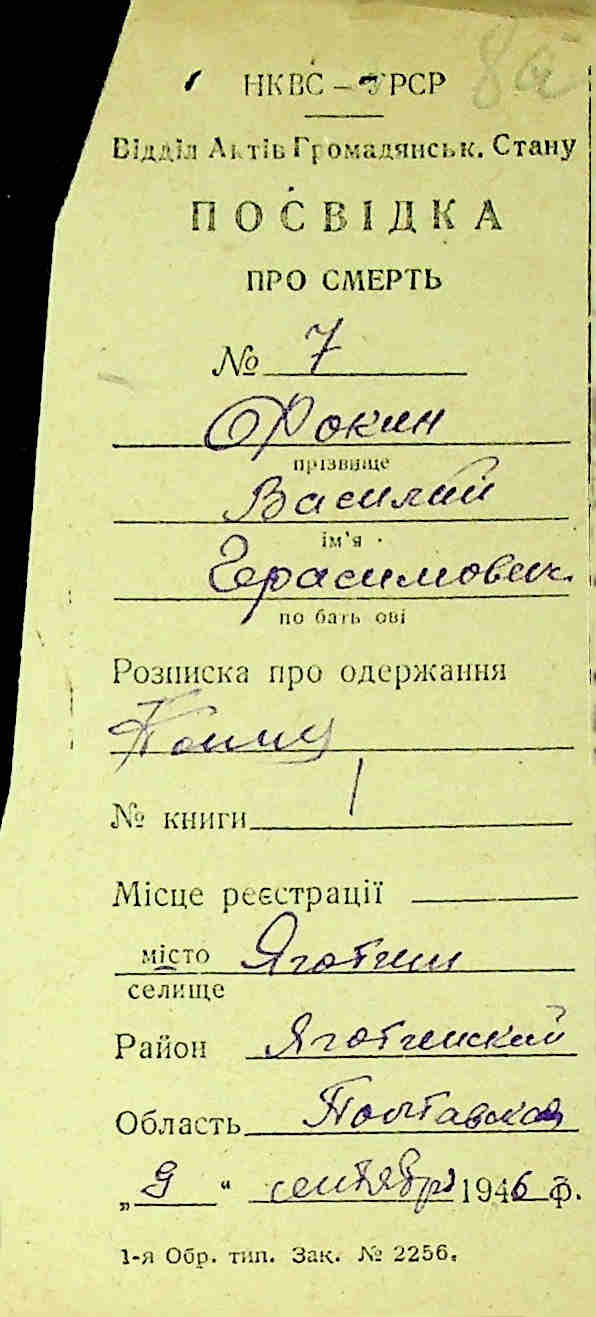 НКВС – УРСР
8а
Відділ Актів Громадянськ. Стану
ПОСВІДКА
ПРО СМЕРТЬ
№ 7
Фокин
прізвище
Василий
ім'я
Герасимович
по батькові
Розписка про одержання
№ книги 1
Місце реєстрації
місто Яготин
селище
Район Яготинский
Область Полтавская
„9“ сентября 1946 р.
1-я Обр. тип. Зак. № 2256.